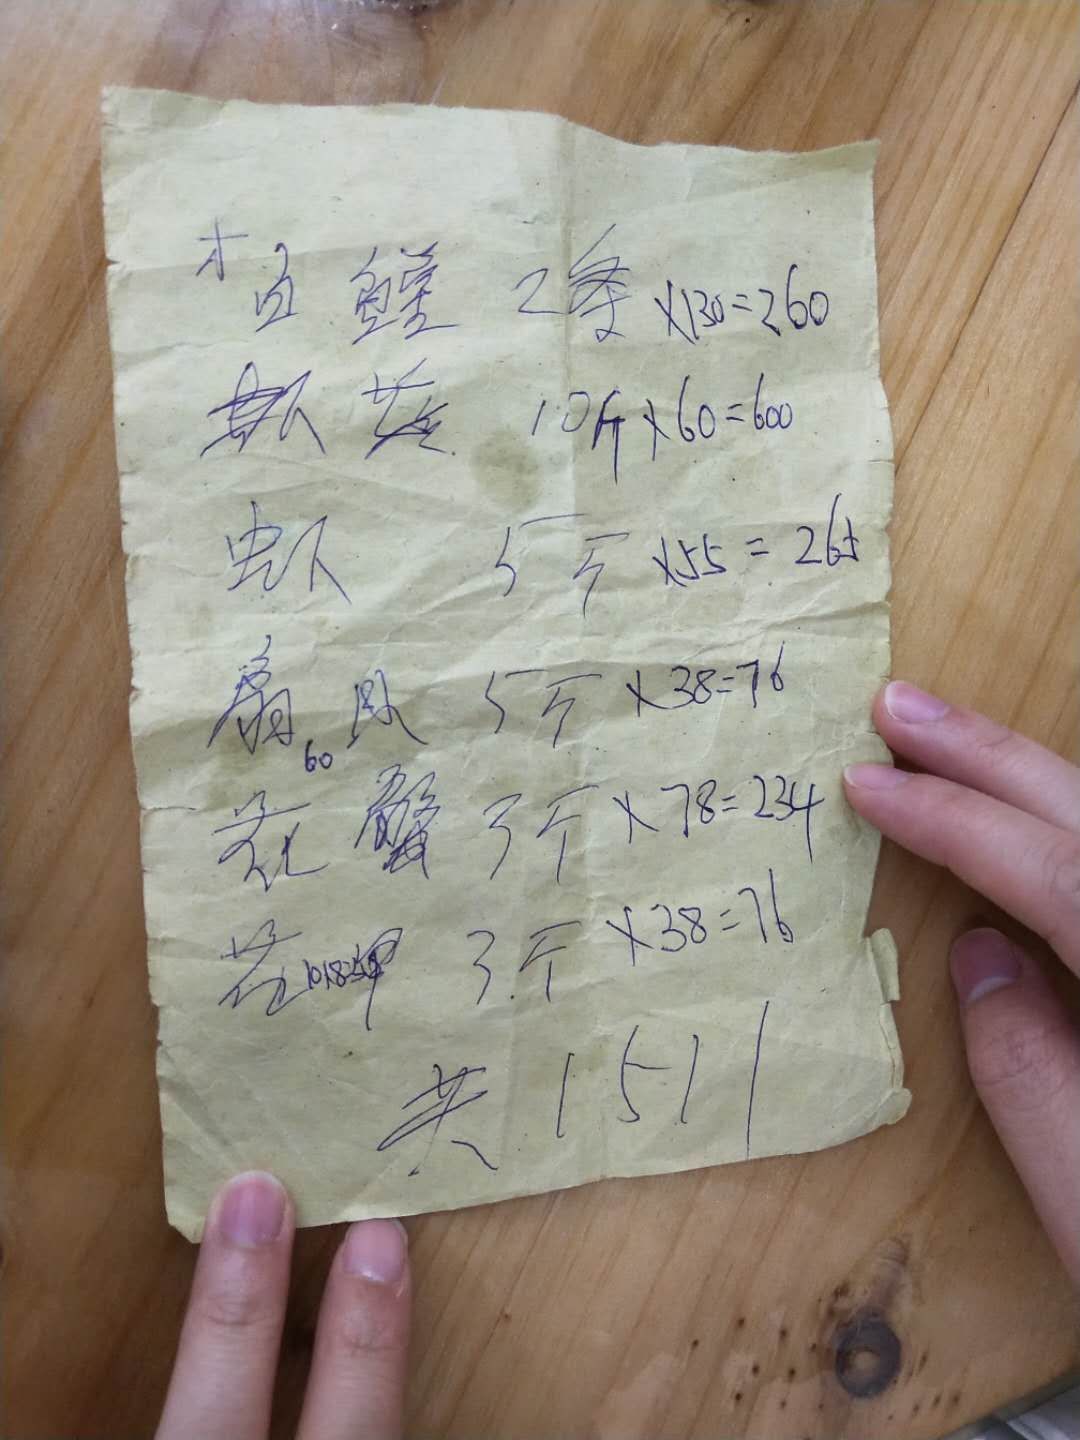 白鲳 2条 ×130=260
虾姑 10斤×60=600
虾 5斤 ×55=265
扇贝 5斤 ×38=76
60
花蟹 3斤 ×78=234
花甲 3斤 ×38=76
共 1511